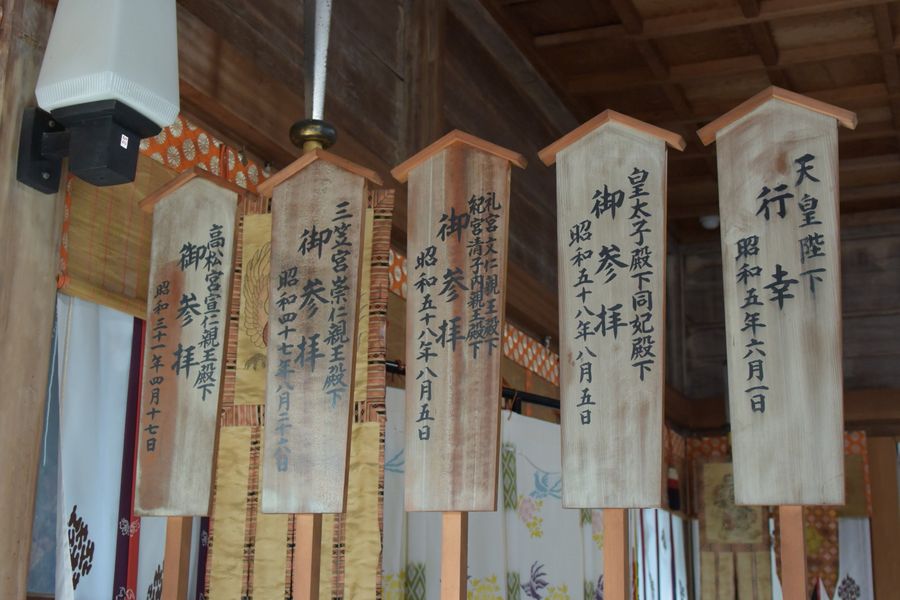 天皇陛下
行幸
昭和五年六月一日
皇太子殿下同妃殿下
御参拝
昭和五十八年八月五日
礼宮文仁親王殿下
紀宮清子内親王殿下
御参拝
昭和五十八年八月五日
三笠宮崇仁親王殿下
御参拝
昭和四十七年八月二十六日
高松宮宣仁親王殿下
御参拝
昭和三十一年四月十七日